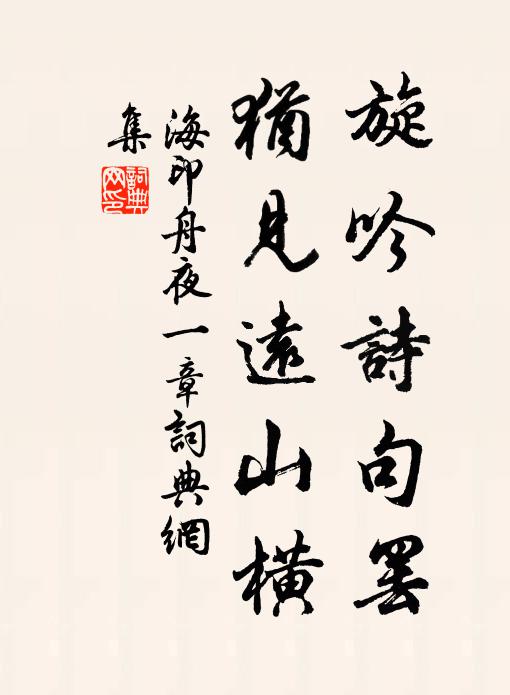 旋吟詩句罢
猶見遠山橫
海印舟夜一章詞典網
集
詞典
网印